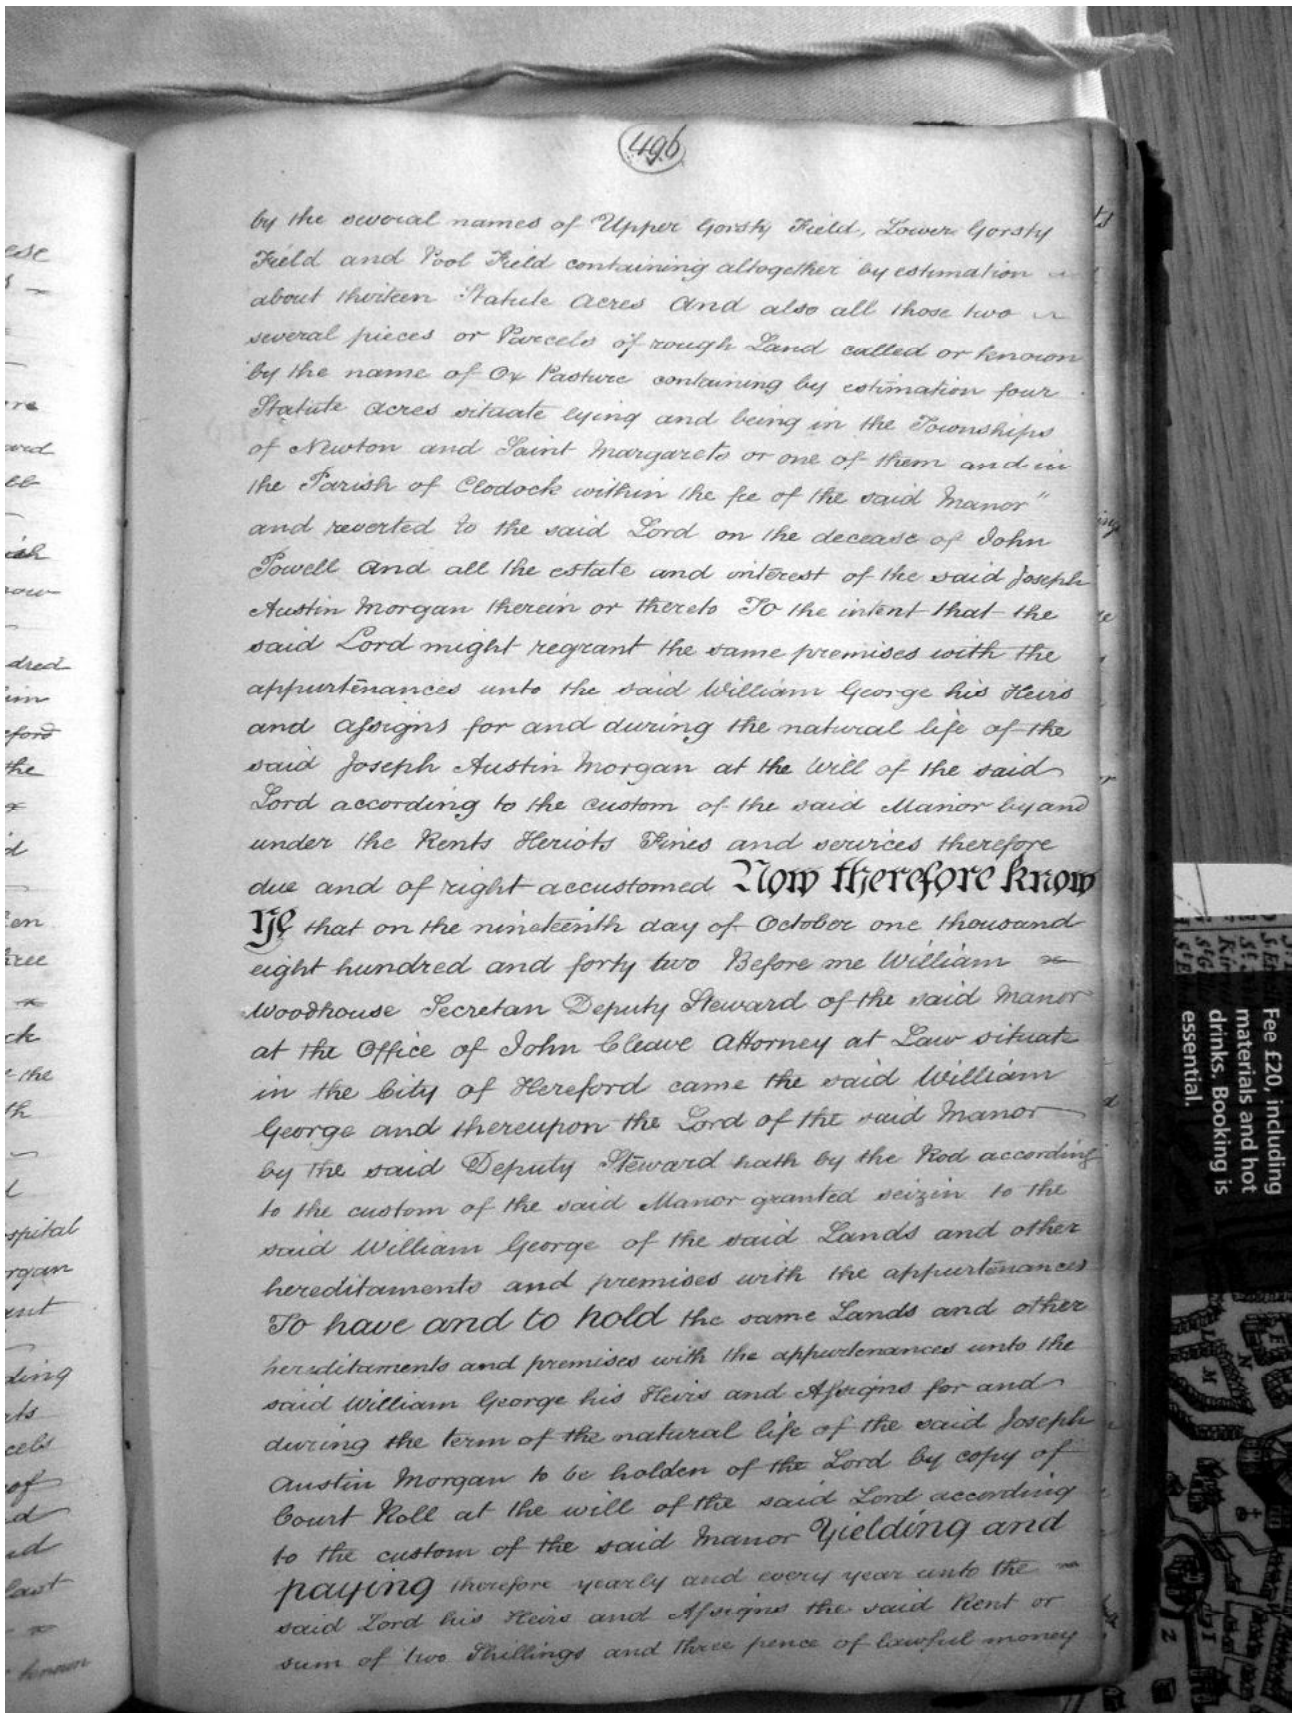 496
by the several names of Upper Gorsty Field, Lower Gorsty
Field and Pool Field containing altogether by estimation
about thirteen Statute Acres And also all those two
several pieces or Parcels of rough Land called or known
by the name of Ox Pasture containing by estimation four
Statute Acres situate lying and being in the Townships
of Newton and Saint Margarets or one of them and in
the Parish of Clodock within the fee of the said Manor"
and reverted to the said Lord on the decease of John
Powell And all the estate and interest of the said Joseph
Austin Morgan therein or thereto To the intent that the
said Lord might regrant the same premises with the
appurtenances unto the said William George his Heirs
and Assigns for and during the natural life of the
said Joseph Austin Morgan at the Will of the said
Lord according to the custom of the said Manor by and
under the Rents Heriots Fines and services therefore
due and of right accustomed Now therefore know
Ye that on the nineteenth day of October one thousand
eight hundred and forty two Before me William
Woodhouse Secretan Deputy Steward of the said Manor
at the Office of John Cleave Attorney at Law situate
in the City of Hereford came the said William
George and thereupon the Lord of the said Manor
by the said Deputy Steward hath by the Rod according
to the custom of the said Manor granted seizin to the
said William George of the said Lands and other
hereditaments and premises with the appurtenances
To have and to hold the same Lands and other
hereditaments and premises with the appurtenances unto the
said William George his Heirs and Assigns for and
during the term of the natural life of the said Joseph
Austin Morgan to be holden of the Lord by copy of
Court Roll at the will of the said Lord according
to the custom of the said Manor Yielding and
paying therefore yearly and every year unto the
said Lord his Heirs and Assigns the said Rent or
sum of two Shillings and three pence of lawful money
Fee £20, including
materials and hot
drinks. Booking is
essential.